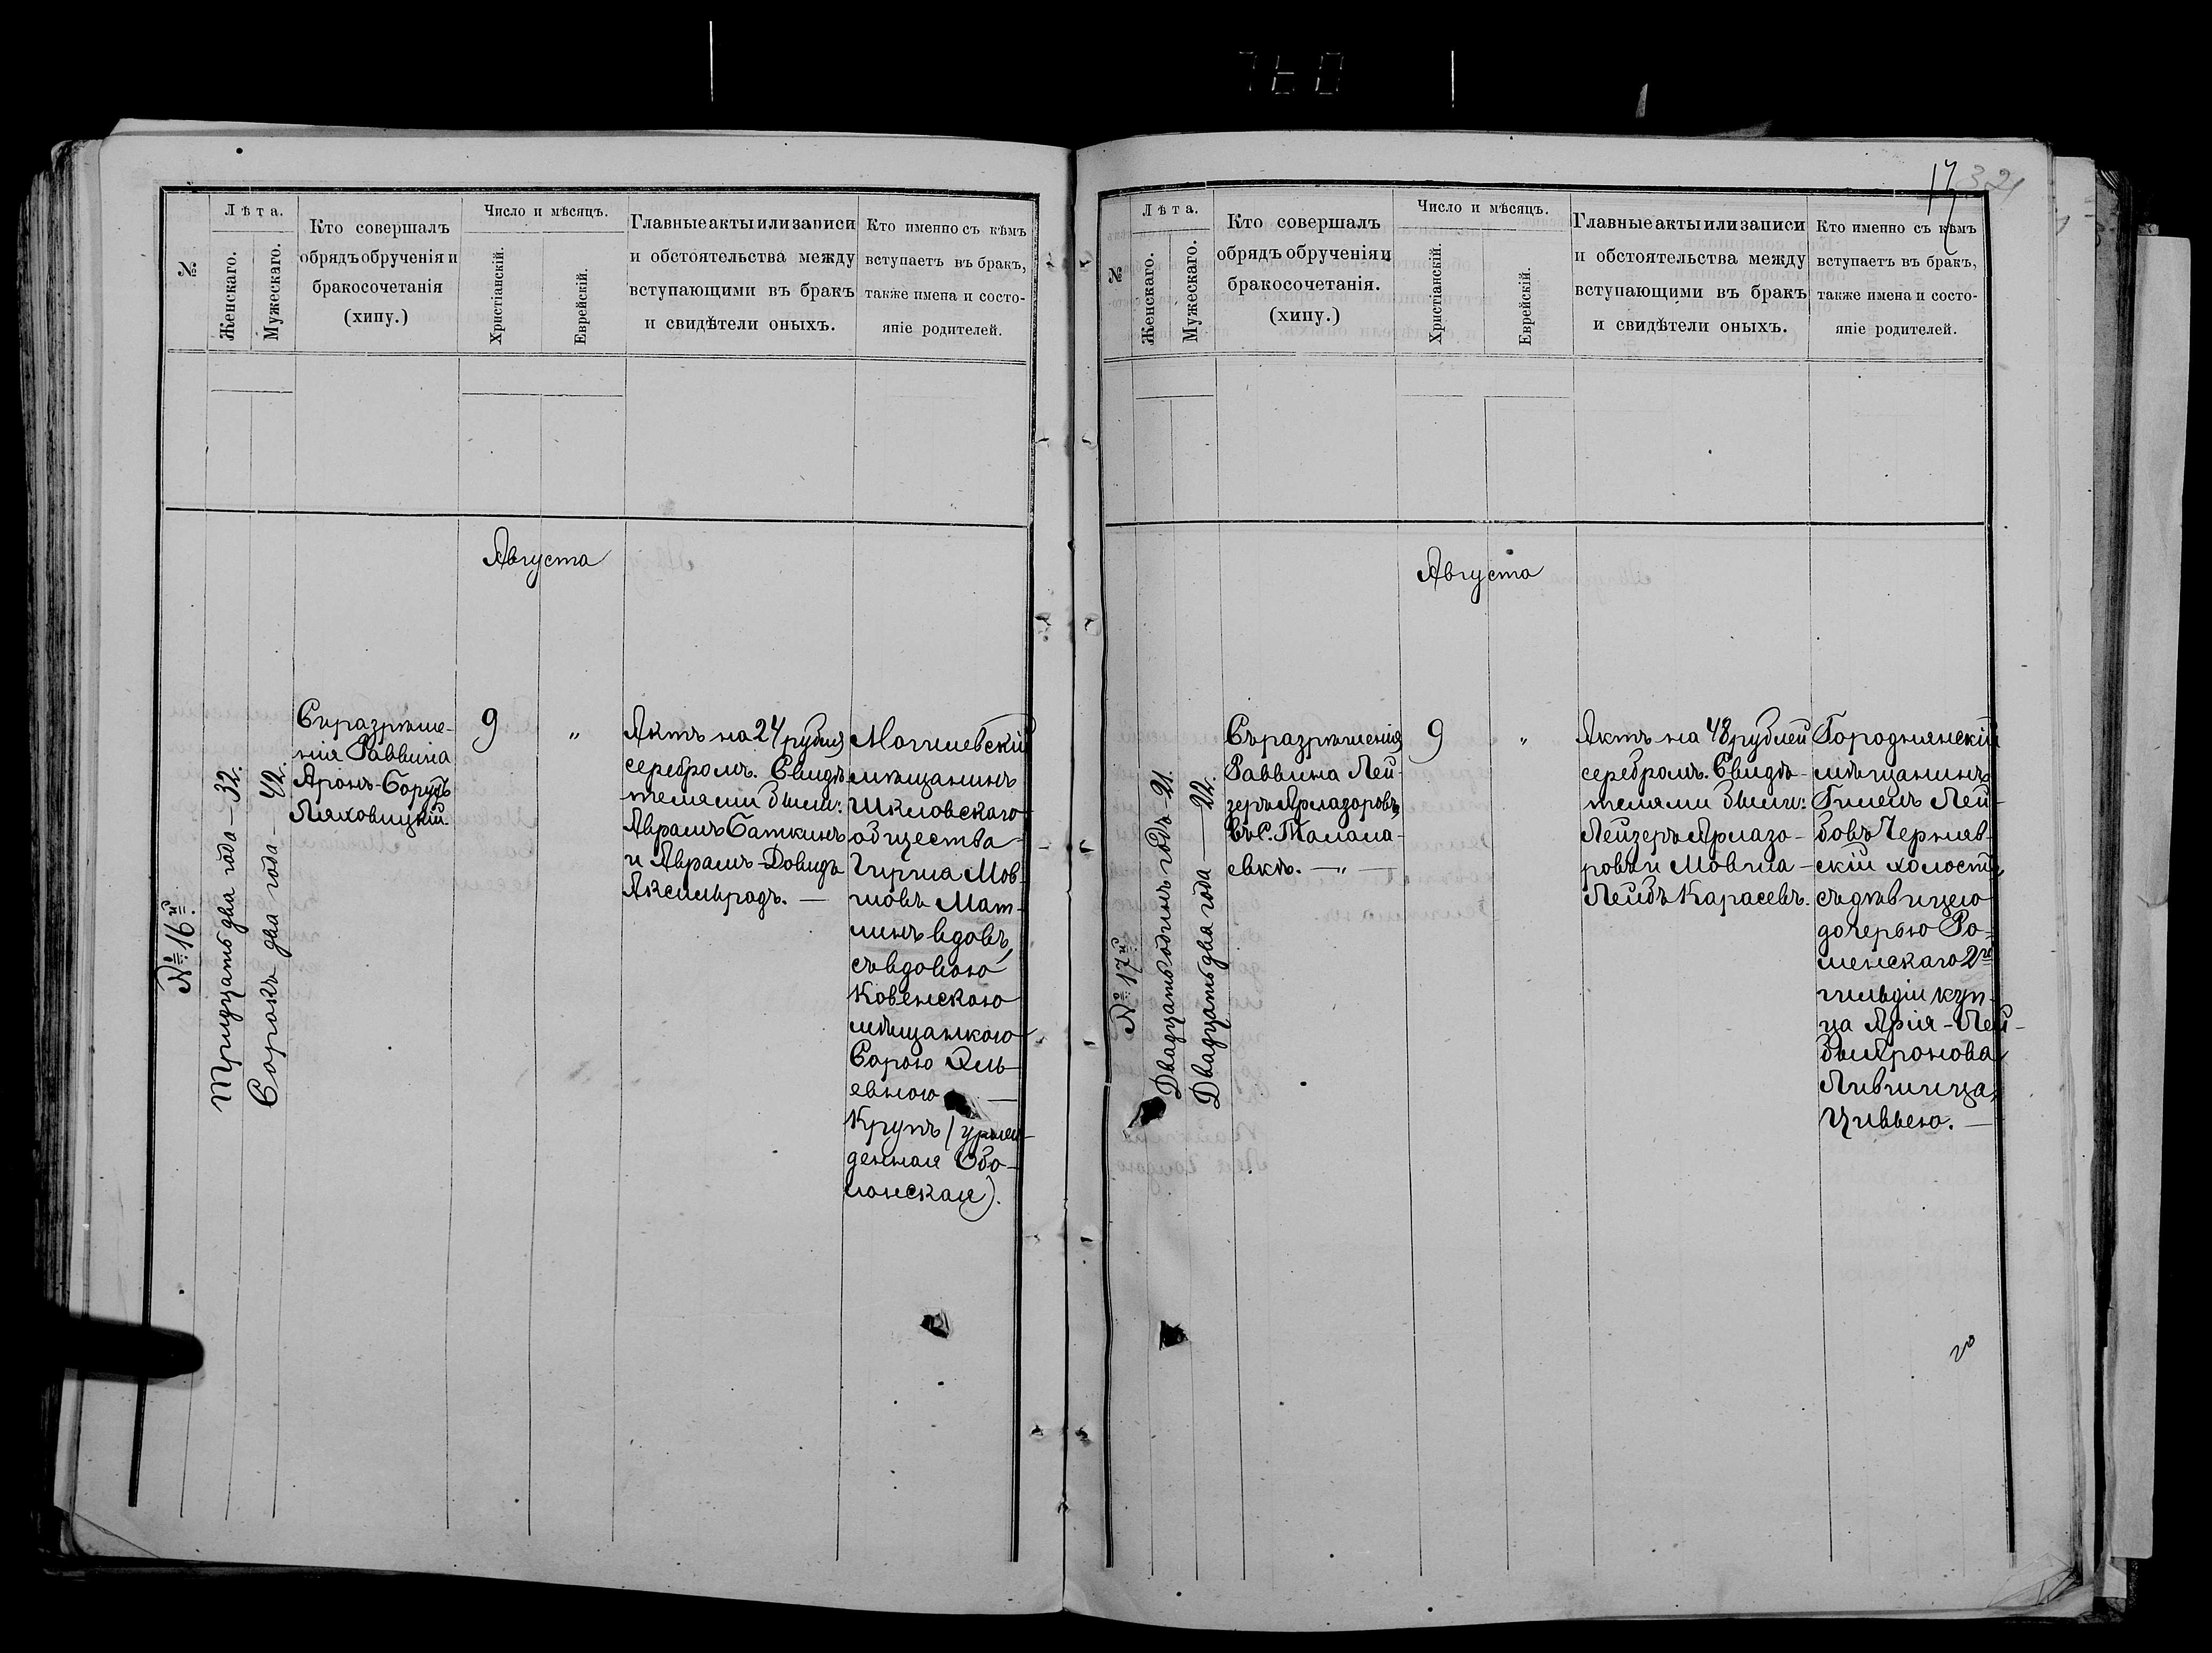 №
Лѣта.
Женскаго.
Мужескаго.
Кто совершалъ
обрядъ обрученія и
бракосочетанія
(хипу.)
Число и мѣсяцъ.
Христіанскій.
Еврейскій.
Главные акты или записи
и обстоятельства между
вступающими въ бракъ
и свидѣтели оныхъ.
Кто именно съ кѣмъ
вступаетъ въ бракъ,
также имена и состо-
яніе родителей.
Августа
№ 16й.
Тридцать два года — 32.
Сорокъ два года — 42.
Съ разрѣше-
нія Раввина
Аронъ-Борухъ
Ляховицкій.
9
"
Актъ на 24 рубля
серебромъ. Свидѣ-
телями были:
Аврамъ Баткинъ
и Аврамъ-Довидъ
Аксельрадъ. —
Могилевскій
мѣщанинъ
Шкловскаго
общества
Гирша Мов-
шовъ Мат-
линъ вдовъ,
съ вдовою
Ковенскою
мѣщанкою
Сорою
евною —
Крупъ (урож-
денная Обо-
лонская).
17
32
№
Лѣта.
Женскаго.
Мужескаго.
Кто совершалъ
обрядъ обрученія и
бракосочетанія.
(хипу.)
Число и мѣсяцъ.
Христіанскій.
Еврейскій.
Главные акты или записи
и обстоятельства между
вступающими въ бракъ
и свидѣтели оныхъ.
Кто именно съ кѣмъ
вступаетъ въ бракъ,
также имена и состо-
яніе родителей.
Августа
№ 17й
Двадцать одинъ годъ — 21.
Двадцать два года — 22.
Съ разрѣшенія
Раввина Лей-
зеръ Арлазоровъ
въ с. Талала-
евкѣ. — " —
9
"
Актъ на 48 рублей
серебромъ. Свидѣ-
телями были:
Лейзеръ Арлазо-
ровъ и Мовша-
Лейбъ Карасевъ.
Городнянскій
мѣщанинъ
Гилель Лей-
бовъ Черняв-
скій холостъ,
съ дѣвицею
дочерью Ро-
менскаго 2й
гильдіи куп-
ца Арія-Лей-
бы Аронова
Лившица,
Цивьею. —